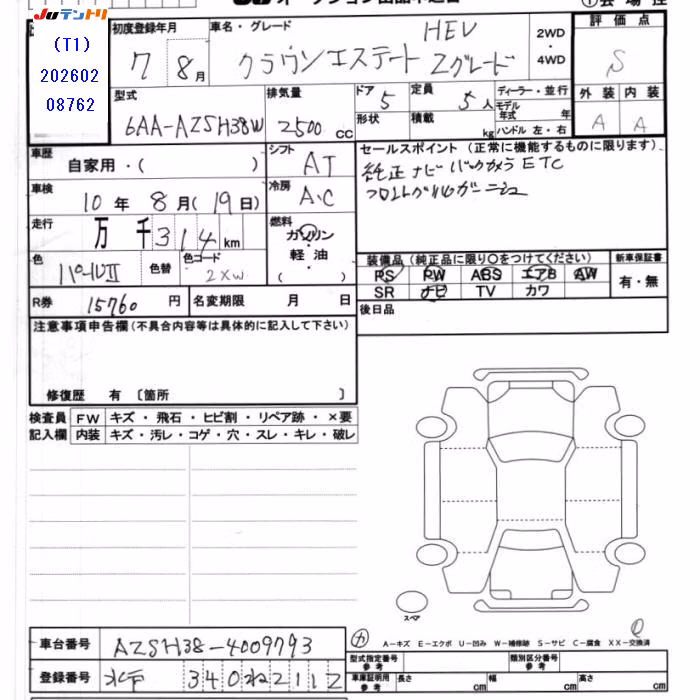 JUテントリ
(T1)
202602
08762
初度登録年月 車名・グレード
7 8月
HEV
クラウンエステート Zグレード
2WD
・
4WD
評価点
S
外装 内装
A A
型式
6AA-AZSH38W
排気量
2500 cc
ドア 5
定員 5人
ディーラー・並行
形状
積載 kg
モデル年式 年
ハンドル 左・右
車歴
自家用・( )
シフト
AT
セールスポイント (正常に機能するものに限ります)
純正ナビ バックカメラ ETC
フロントグリルガーニシュ
車検
10年 8月(19日)
冷房
A.C
走行
万千314km
燃料
ガソリン
・
軽油
・
( )
色
パールⅡ
色替
色コード
2XW
装備品 (純正品に限り○をつけてください)
新車保証書
PS PW ABS エアB AW
SR ナビ TV カワ
有・無
R券 15760 円
名変期限 月 日
後日品
注意事項申告欄(不具合内容等は具体的に記入して下さい)
修復歴 有〔箇所 〕
検査員 FW キズ・飛石・ヒビ割・リペア跡・×要
記入欄 内装 キズ・汚レ・コゲ・穴・スレ・キレ・破レ
スペア
車台番号 AZSH38-4009793
カ
A－キズ E－エクボ U－凹み W－補修跡 S－サビ C－腐食 XX－交換済
登録番号 水戸 340ね2112
型式指定番号
参考
類別区分番号
参考
車庫証明用
参考
長さ cm
幅 cm
高さ cm